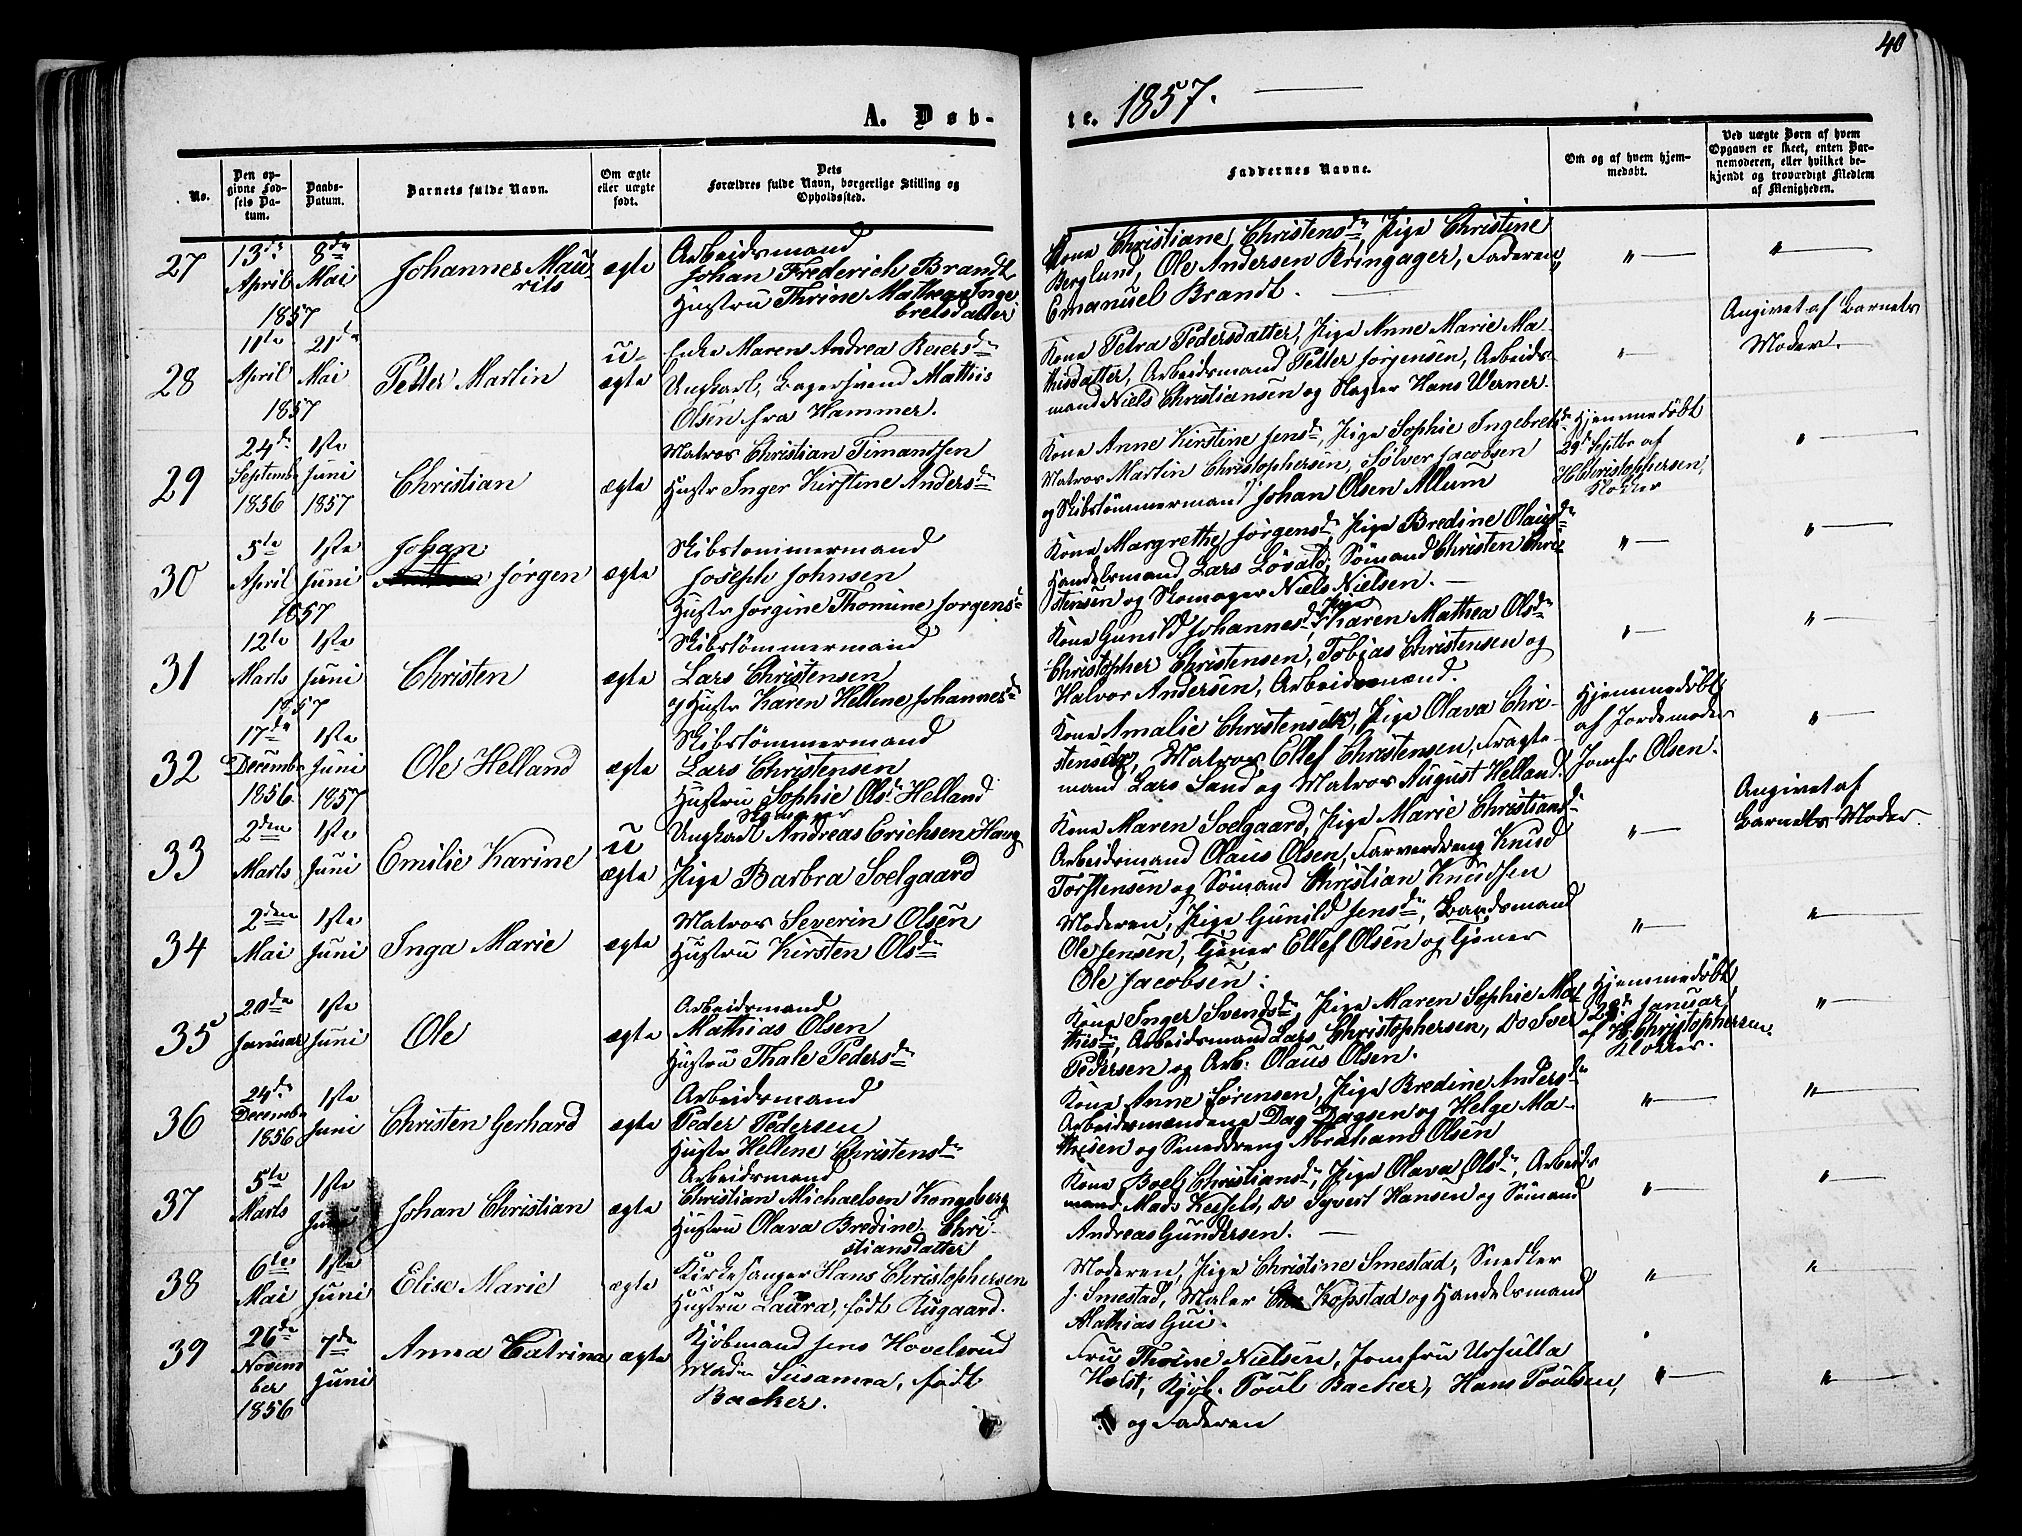 40
A. Døb-
te. 1857.
No.
Den op-
givne Fød-
sels Da-
tum.
Daabs-
Datum.
Barnets fulde Navn.
Om ægte
eller uægte
født.
Dets
Forældres fulde Navn, borgerlige Stilling og
Opholdssted.
Faddernes Navne.
Om og af hvem hjem-
medøbt.
Ved uægte Børn af hvem
Opgaven er skeet, enten Bar-
nemoderen, eller hvilket be-
kjendt og troværdigt Medlem
af Menigheden.
27
13de
April
1857
8de
Mai
Johannes Mau-
rits
ægte
Arbeidsmand
Johan Frederich Brandt
Hustru Thrine Mathea Inge
bretsdatter
Kone Christiane Christensdr, Pige Christine
Berglund, Ole Andersen Bringager, Faderen,
Emanuel Brandt.
28
11te
April
1857
21de
Mai
Petter Martin
u-
ægte
Enke Maren Andrea Reiersdr
Ungkarl, Bagersvend Mathis
Olsen fra Hammer.
Kone Petra Pedersdatter, Pige Anne Marie Ma-
thisdatter, Arbeidsmand Petter Jørgensen, Arbeids-
mand Niels Christiansen og Slagter Hans Werner.
Angivet af Barnets
Moder.
29
24de
Septemb
1856
1ste
Juni
1857
Christian
ægte
Matros Christian Timandsen
Hustr Inger Kirstine Andersdr
Kone Anne Kirstine Jensdr, Pige Sophie Ingebretsdr
Matros Martin Christophersen, Sølver Jacobsen
og Skibstømmermand Johan Olsen Allum
Hjemmedøbt
29de Septbr af
H Christophersen,
Klokker
30
5te
April
1857
1ste
Juni
Johan
Jørgen
ægte
Skibstommermand
Joseph Johnsen
Hustr Jorgine Thomine Jorgensdr
Kone Margrethe Jørgensdr Pige Bredine Olausdr
Handelsmand Lars Lövald, Sömand Christen Chri-
stensen og Skomager Niels Nielsen.
31
12te
Marts
1857
1ste
Juni
Christen
ægte
Skibstömmermand
Lars Christensen
og Hustr Karen Hellene Johannesdr
Kone Gunild Johannesdr, Pige Karen Mathea Olsdr
Christopher Christensen, Tobias Christensen og
Halvor Andersen, Arbeidsmænd.
32
17de
Decembr
1856
1ste
Juni
1857
Ole Helland
ægte
Skibstömmermand
Lars Christensen
Hustru Sophie Olsdr Helland
Kone Amalie Christensdr, Pige Olava Chri-
stensdr, Matros Ellef Christensen, Fragte-
mand Lars Sand og Matros August Helland
Hjemmedøbt
af Jordemoder
Jomfr Olsen.
33
2den
Marts
1ste
Juni
Emilie Karine
u
ægte
Skomager
Ungkarl Andreas Erichsen Haug
Pige Barbra Soelgaard
Kone Maren Soelgaard, Pige Marie Christiansdr
Arbeidsmand Olaus Olsen, Farverdreng Knud
Torstensen og Sömand Christian Knudsen
Angivet af
Barnets Moder.
34
2den
Mai
1ste
Juni
Inga Marie
ægte
Matros Severin Olsen
Hustru Kirsten Olsdr
Moderen, Pige Gunild Jensdr, Baadsmand
Ole Jensen, Tjener Ellef Olsen og Tjener
Ole Jacobsen.
35
20de
Januar
1ste
Juni
Ole
ægte
Arbeidsmand
Mathias Olsen
Hustru Thale Pedersdr
Kone Inger Svendsdr, Pige Maren Sophie Ma-
thisdr, Arbeidsmand Lars Christophersen, Do Iver
Pedersen og Arb: Olaus Olsen.
Hjemmedöbt
22de Januar
af H Christophersen
Klokker.
36
24de
Decembr
1856
1ste
Juni
Christen Gerhard
ægte
Arbeidsmand
Peder Pedersen
Hustr Hellene Christensdr
Kone Anne Sörensen, Pige Bredine Andersdr
Arbeidsmændene Dag Dagsen og Helge Ma-
thisen og Smeddreng Abraham Olsen
37
5te
Marts
1ste
Juni
Johan Christian
ægte
Arbeidsmand
Christian Michaelsen Kongsberg
Hustru Olava Bredine Chri-
stiansdatter
Kone Boel Christiansdr, Pige Olava Olsdr, Arbeids
mand Mads Kessels, Do Syvert Hansen og Sömand
Andreas Gundersen.
38
6te
Mai
1ste
Juni
Elise Marie
ægte
Kirkesanger Hans Christophersen
Hustru Laura, født Rugaard.
Moderen, Pige Christine Smestad, Snedker
J. Smestad, Maler Kopstad og Handelsmand
Mathias Gui.
39
26de
Novem
ber
1856
7de
Juni
Anna Catrina
ægte
Kjöbmand Jens Hovelsrud
Mdm Susanna, født
Backer.
Fru Thrine Nielsen, Jomfru Ursulla
Holst, Kjöb. Poul Backer, Hans Poulsen,
og Faderen